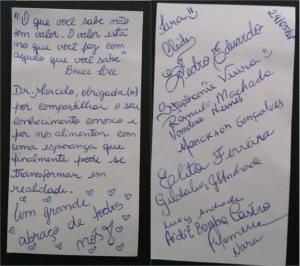 "O que você sabe não
tem valor. O valor está
no que você faz com
aquilo que você sabe."
Bruce Lee
Dr. Marcelo, obrigada(o)
por compartilhar o seu
conhecimento conosco e
por nos alimentar com
uma esperança que
finalmente pode se
transformar em
realidade.
Um grande
abraço de todos
nós!
Sara
Pedro Eduardo
Stephanie Vieira
Romulo Machado
Nunes
Marickson Gonçalves
Elita Ferreira
Guidalia Andrade
Lucy Andrade
Aidil Borba Castro
Nara